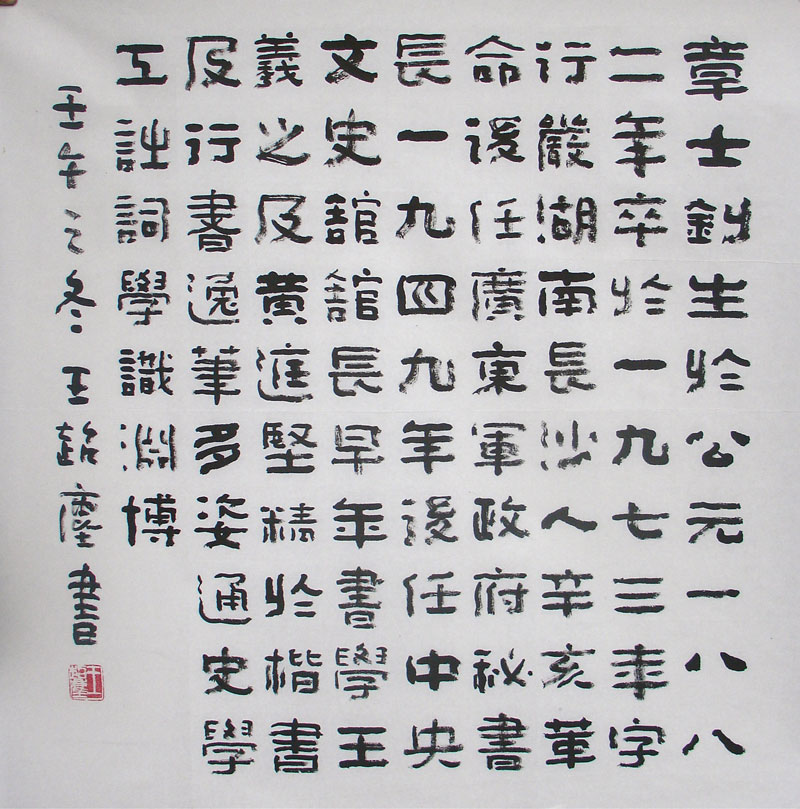 章士釗生於公元一八八
二年卒於一九七三年字
行嚴湖南長沙人辛亥革
命後任廣東軍政府秘書
長一九四九年後任中央
文史舘舘長早年書學王
羲之及黃廷堅精於楷書
及行書逸筆多姿通史學
工詩詞學識淵博
壬午之冬王超塵書